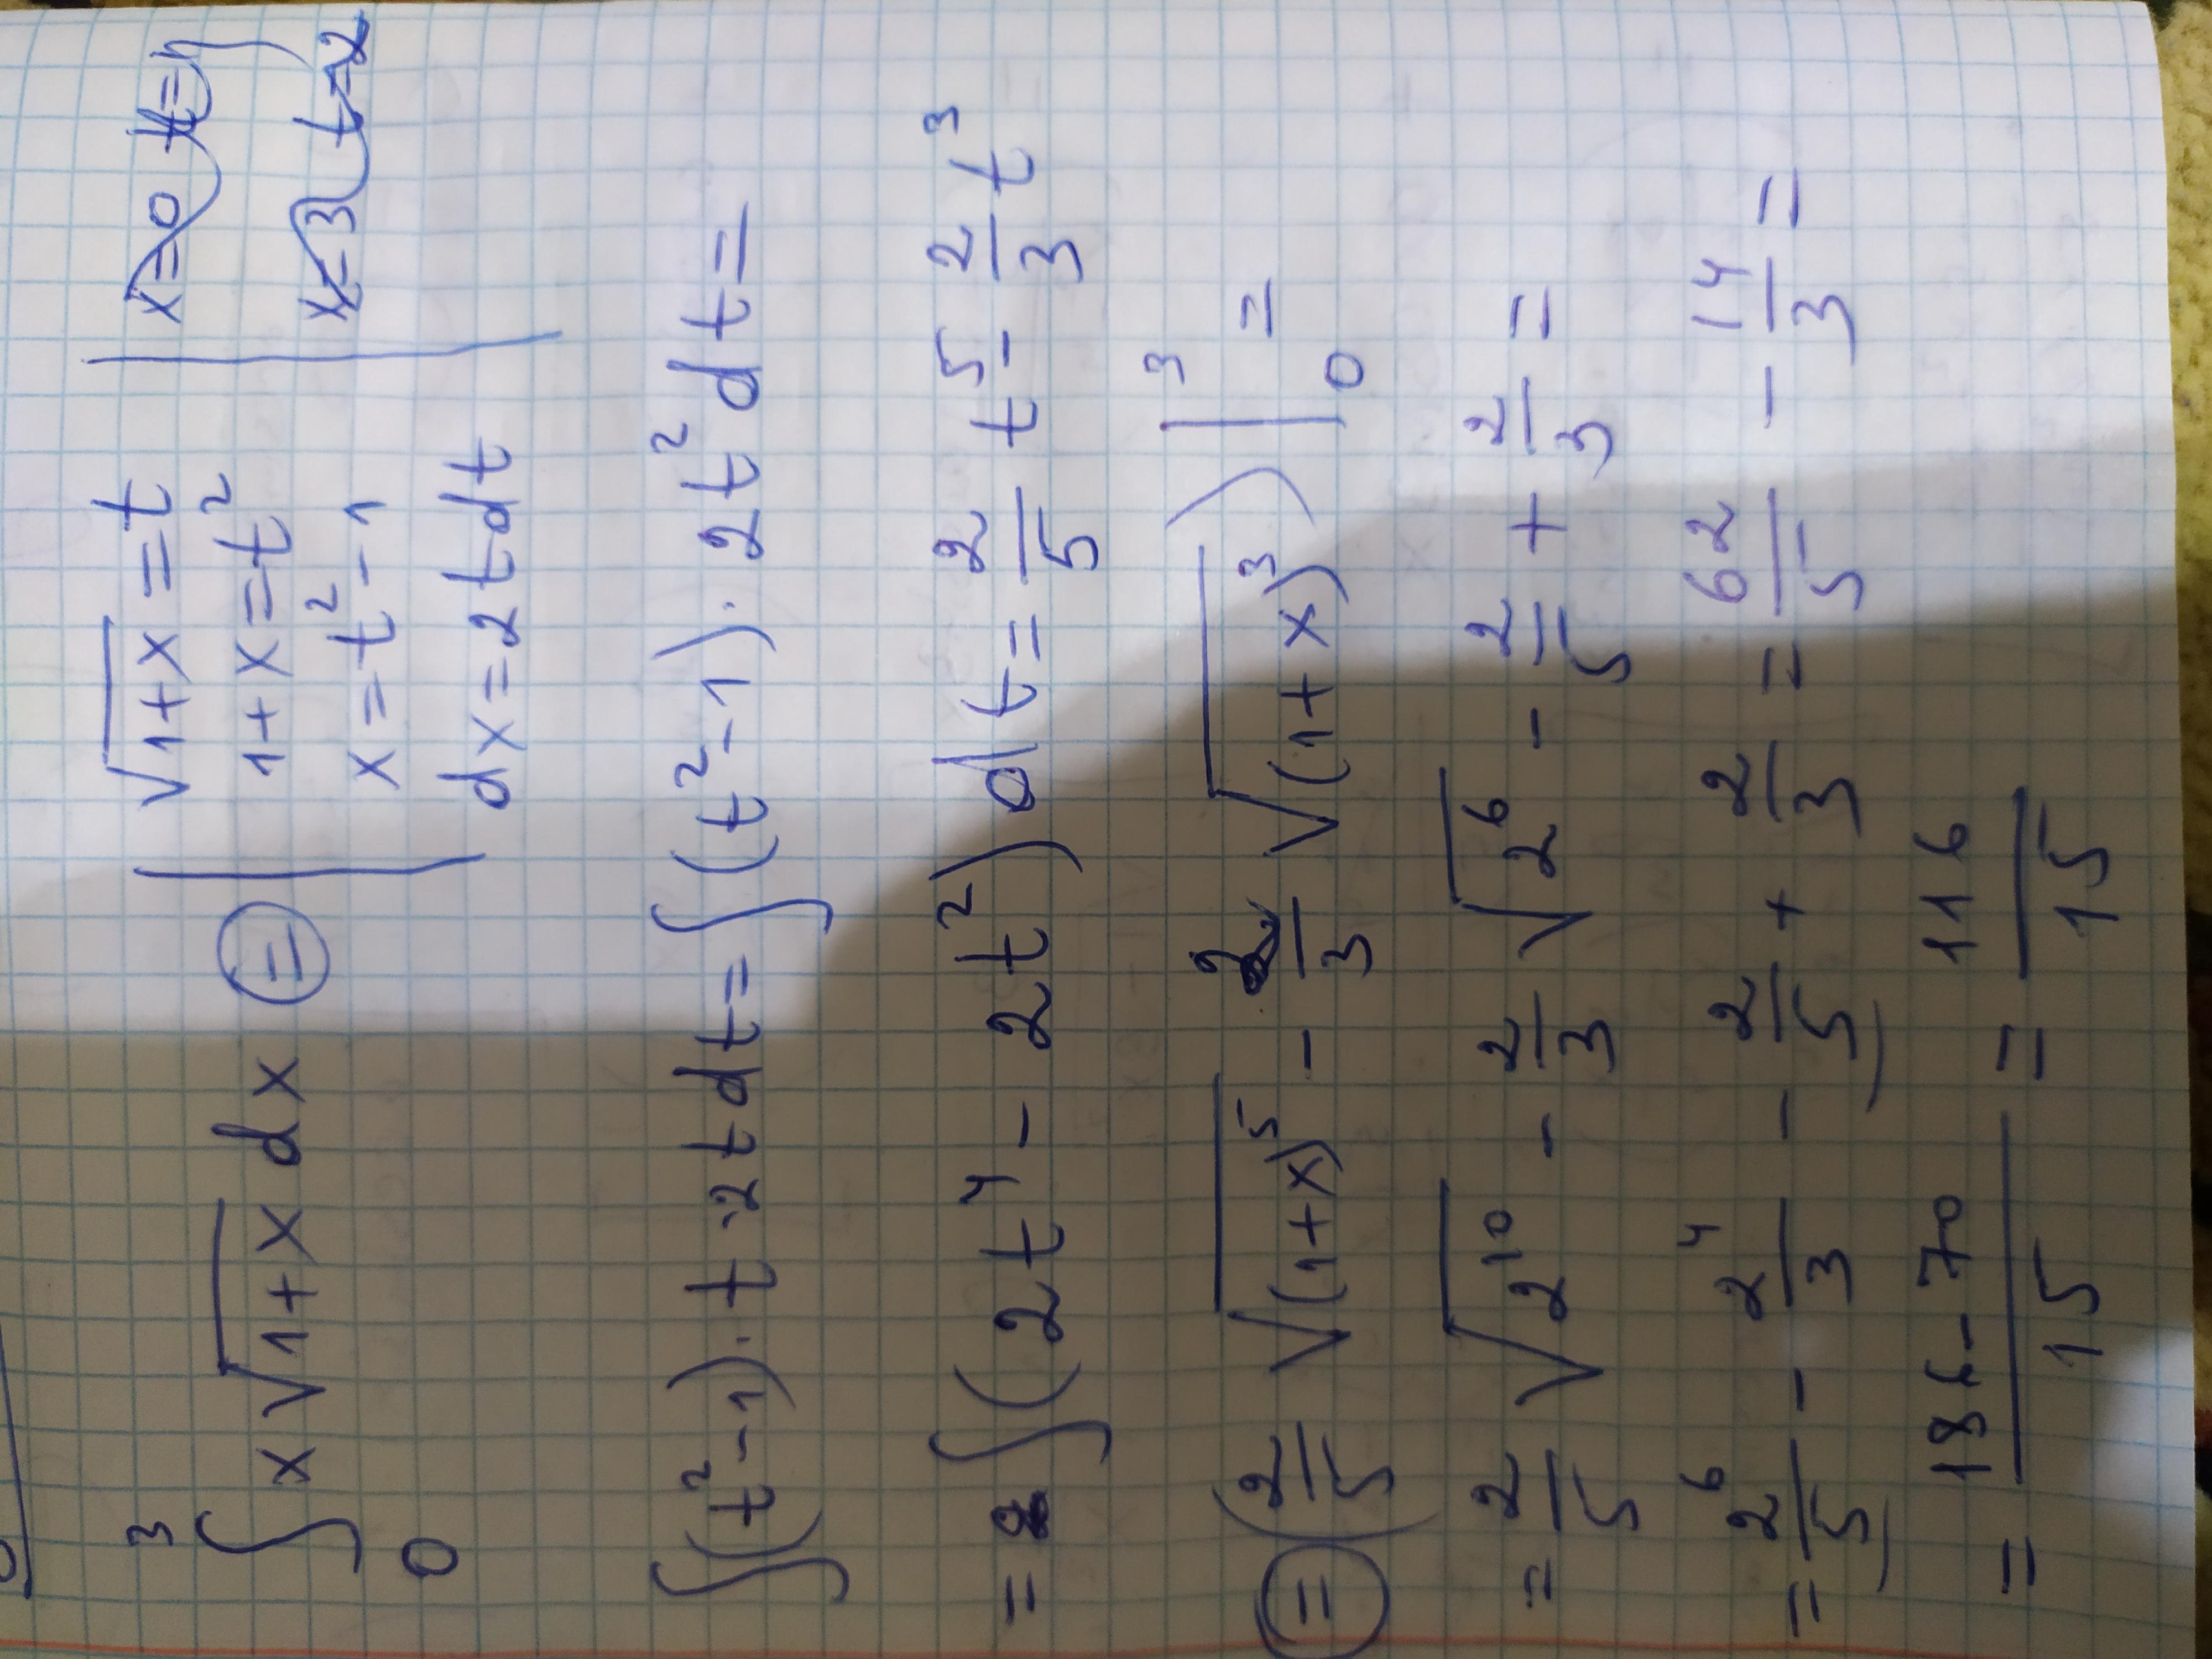 ∫₀³ x√(1+x) dx ⊜ | √(1+x) = t | x=0 t=1
1+x=t² x=3 t=2
x=t²-1
dx=2tdt
∫(t²-1)·t·2tdt=∫(t²-1)·2t²dt=
=∫(2t⁴-2t²)dt=2/5 t⁵-2/3 t³
⊜(2/5 √(1+x)⁵ - 2/3 √(1+x)³)|₀³ =
=2/5 √2¹⁰ - 2/3 √2⁶ - 2/5 + 2/3 =
=2⁶/5 - 2⁴/3 - 2/5 + 2/3 = 62/5 - 14/3 =
=(186-70)/15 = 116/15